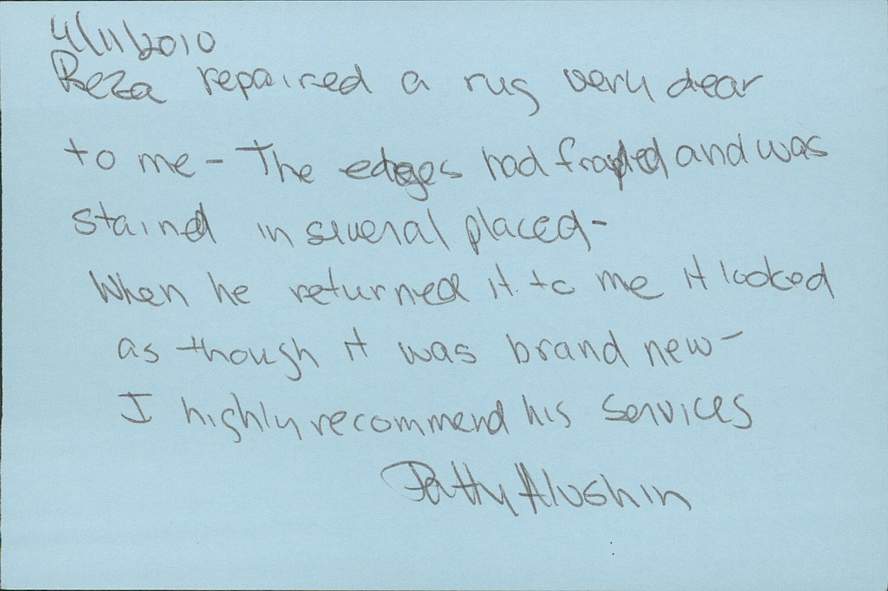 4/11/2010
Reza repaired a rug very dear
to me - The edges had frayed and was
stained in several placed -
When he returned it to me it looked
as though it was brand new -
I highly recommend his services
Patty Alushin